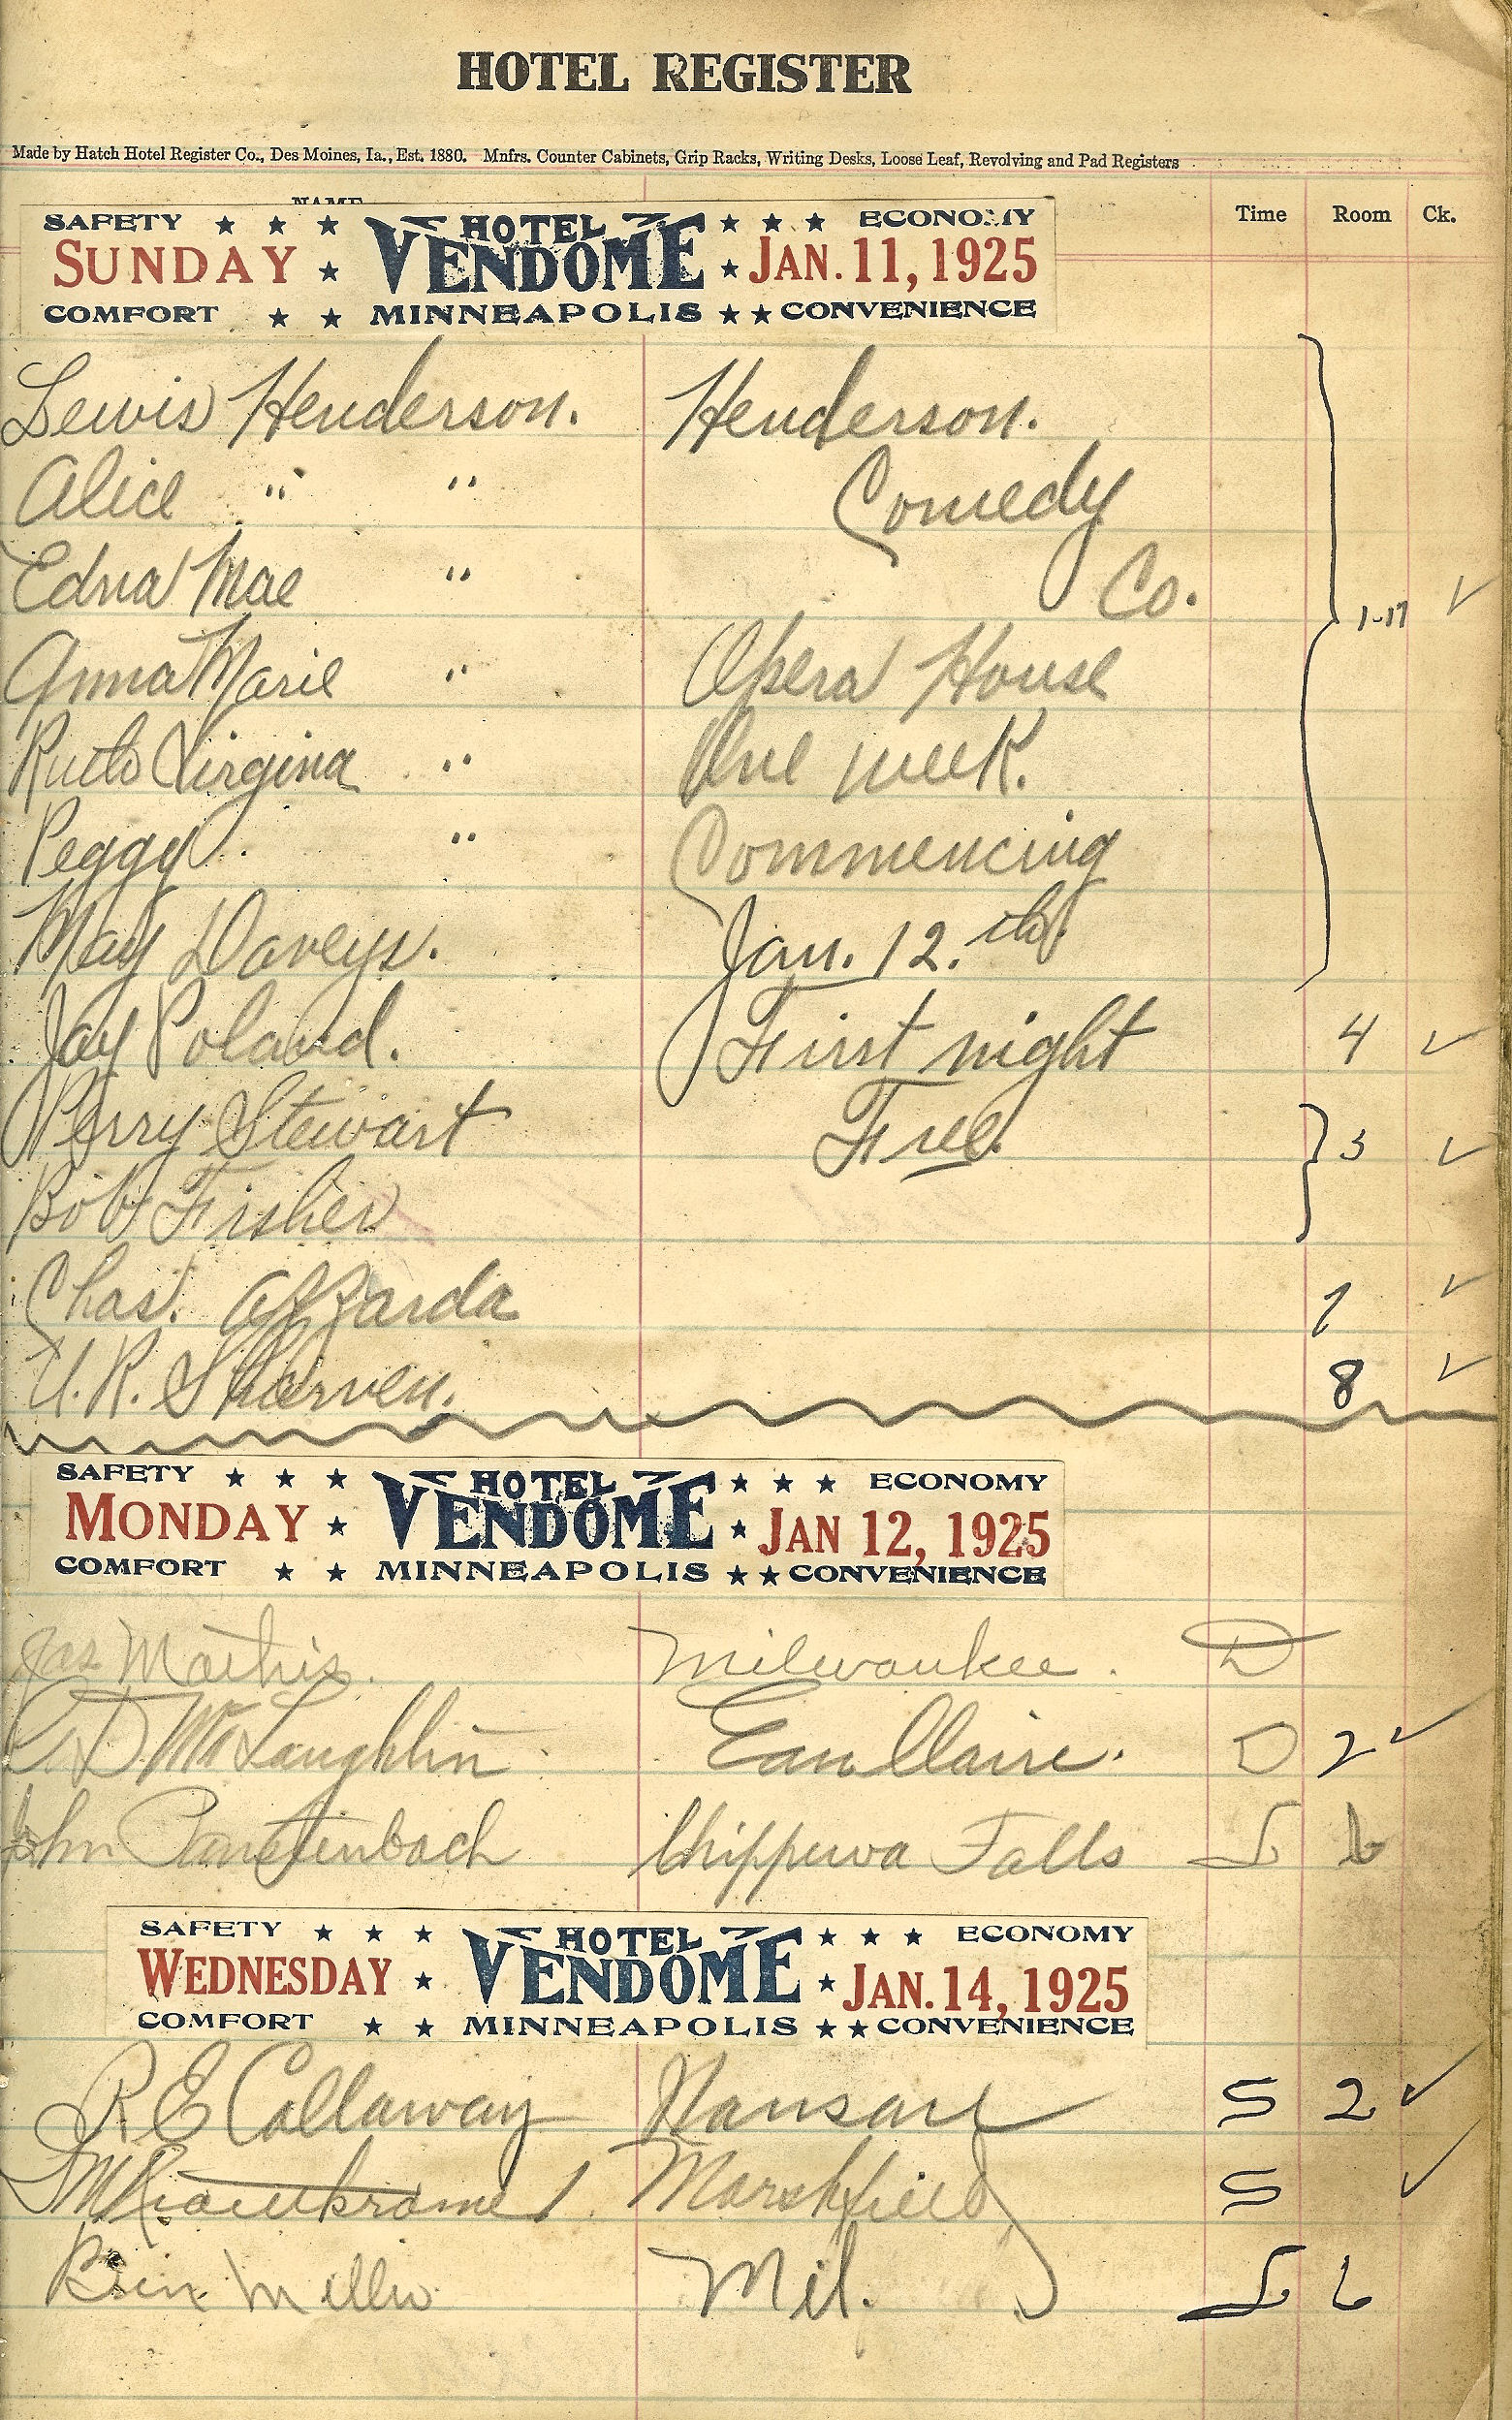 HOTEL REGISTER
Made by Hatch Hotel Register Co., Des Moines, Ia., Est. 1880. Mnfrs. Counter Cabinets, Grip Racks, Writing Desks, Loose Leaf, Revolving and Pad Registers
NAME Time Room Ck.
SAFETY HOTEL ECONOMY
SUNDAY VENDOME JAN. 11, 1925
COMFORT MINNEAPOLIS CONVENIENCE
Lewis Henderson. Henderson.
Alice " " Comedy
Edna Mae " Co. 1-17 ✓
Anna Marie " Opera House
Ruth Virgina " One week.
Peggy. " Commencing
May Daveys. Jan. 12.th
Jay Poland. First night 4 ✓
Perry Stewart Free. ✓
Bob Fisher
Chas. ✓
U. R. 8 ✓
SAFETY HOTEL ECONOMY
MONDAY VENDOME JAN 12, 1925
COMFORT MINNEAPOLIS CONVENIENCE
Jas Mathis. Milwaukee. D
McLaughlin Eau Claire. D 2 ✓
John Chippewa Falls L 6
SAFETY HOTEL ECONOMY
WEDNESDAY VENDOME JAN. 14, 1925
COMFORT MINNEAPOLIS CONVENIENCE
R E Callaway S 2 ✓
Marshfield S ✓
Mil. L 6